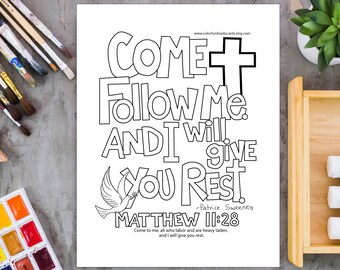 www.colorfulbookcards.etsy.com
COME
Follow Me,
AND I will
give
YOU REST.
-Patrice Sweeney
MATTHEW 11:28
Come to me, all who labor and are heavy laden,
and I will give you rest.